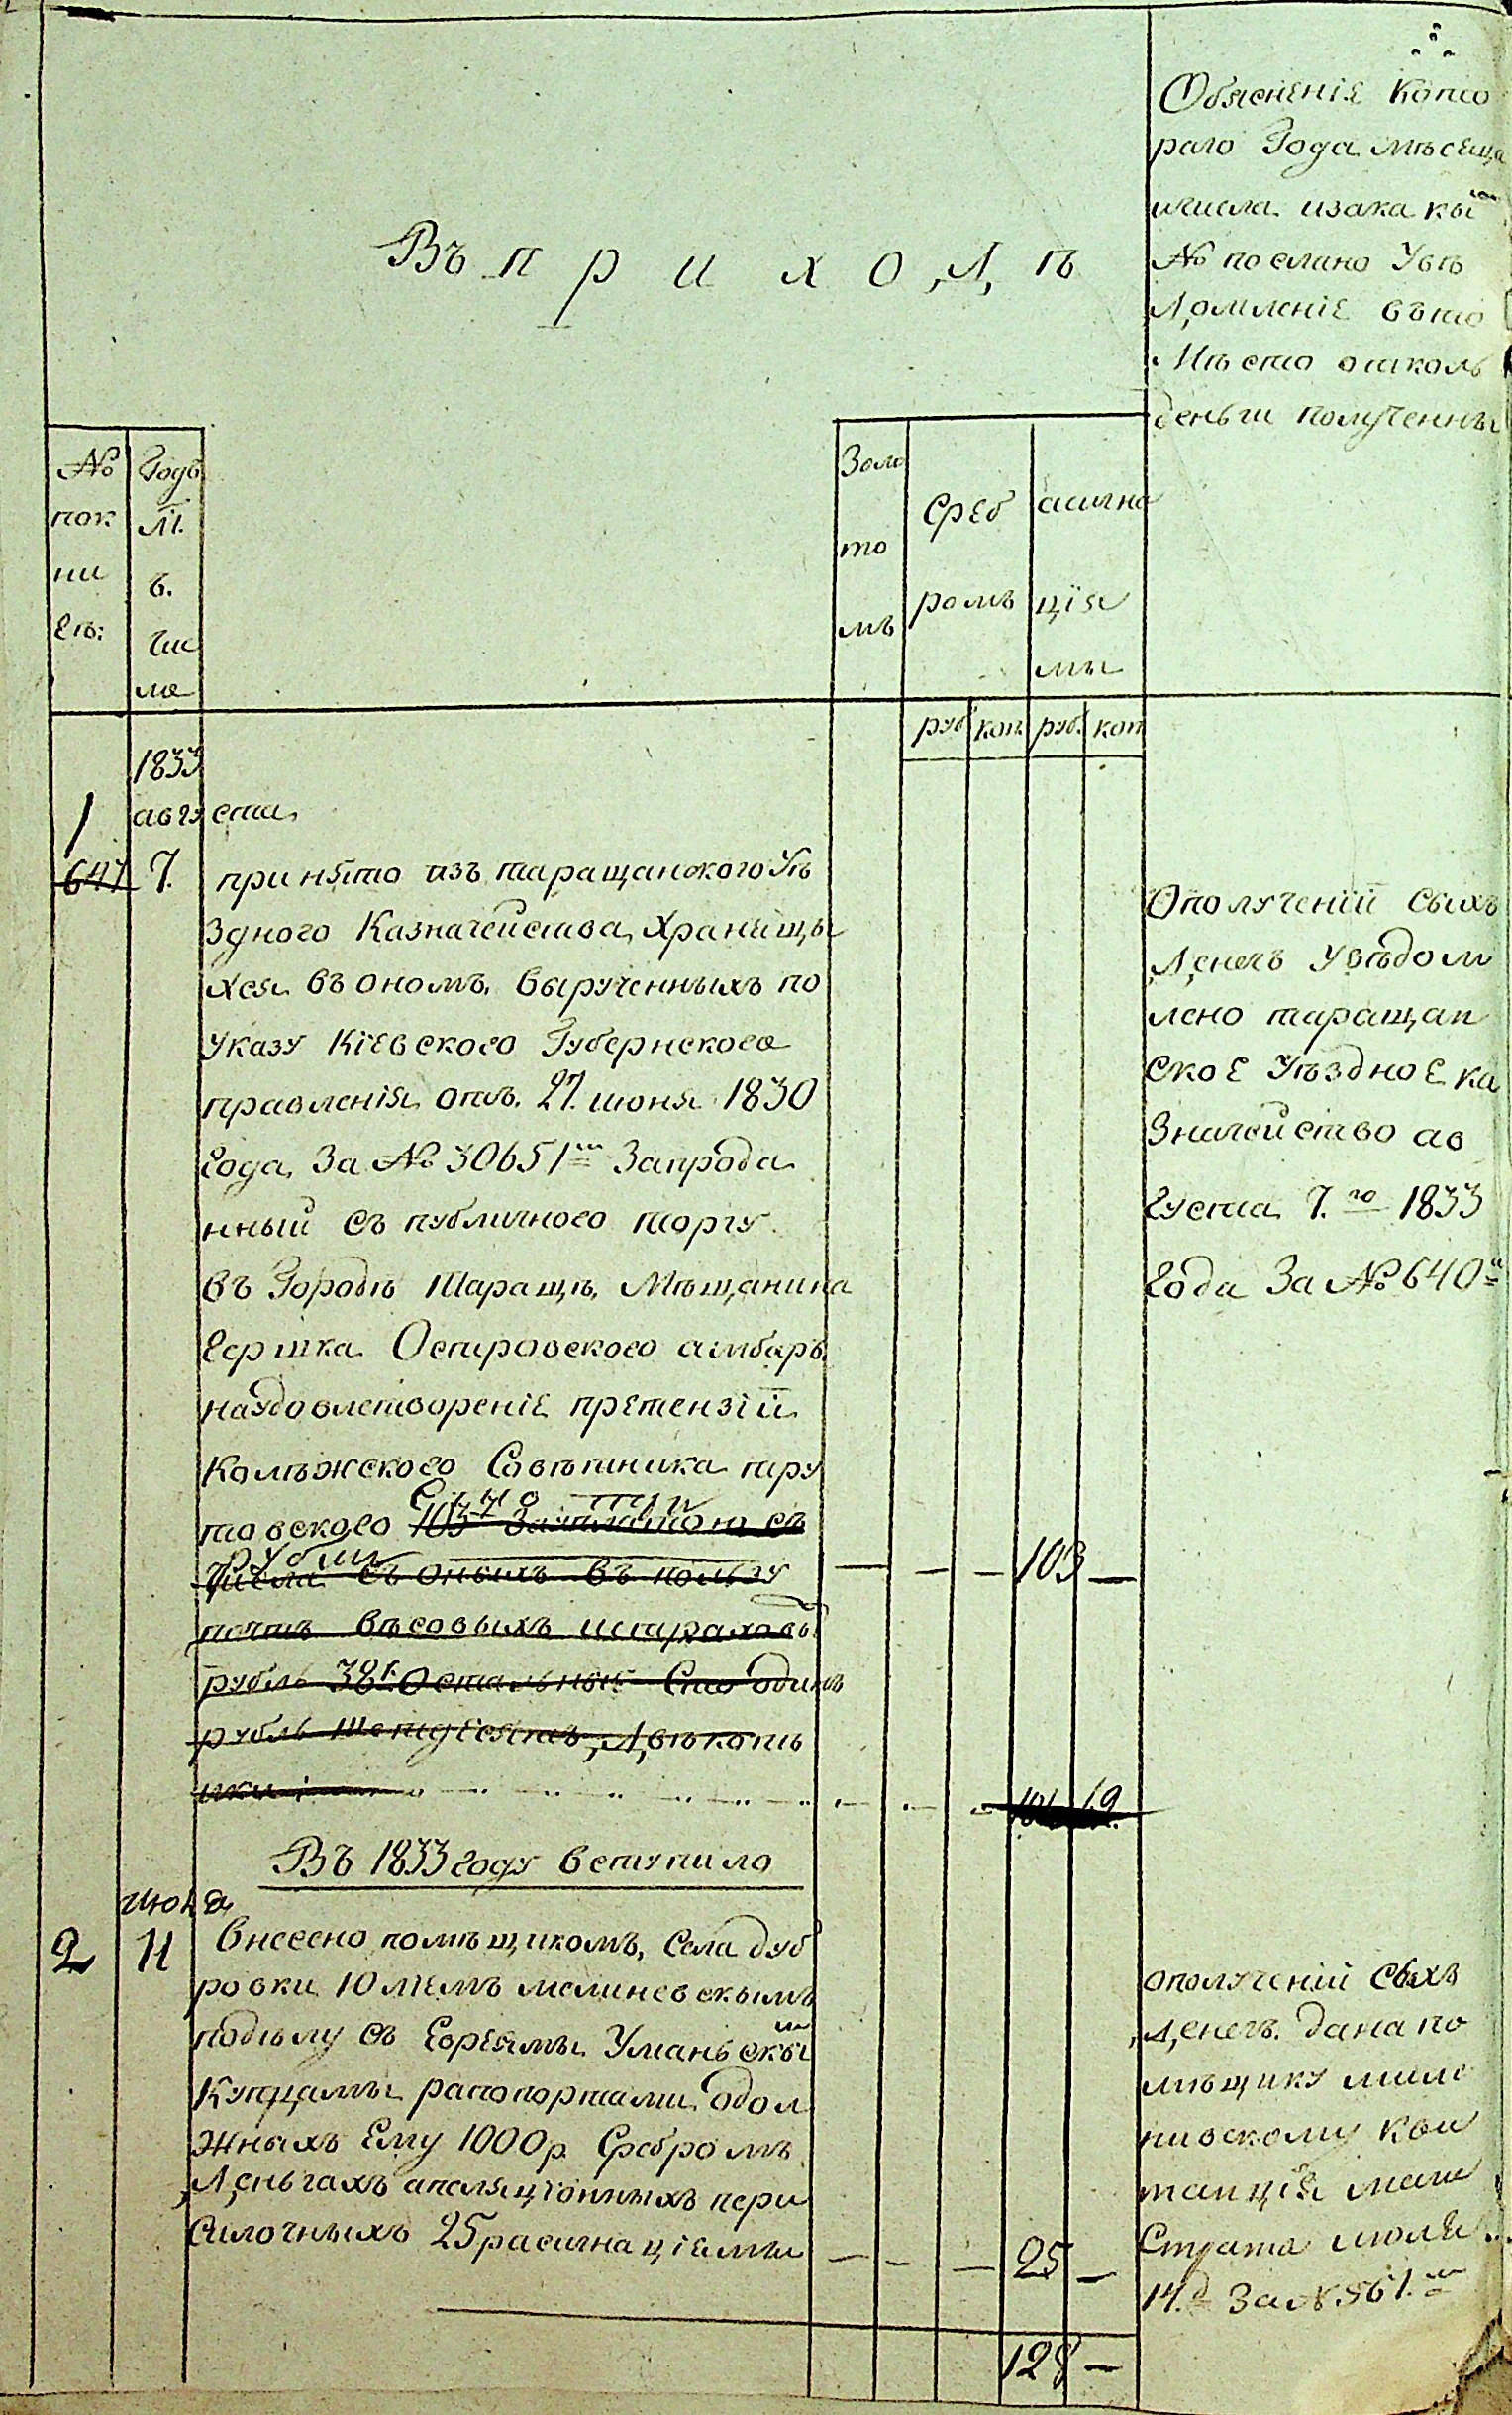 Въ приходѣ
Обясненіе кото
раго Года мѣсеца
ичисла изака кы м
№ послано Увѣ
домленіе вьто
Мѣсто отколь
деньги полученны
№
пок
ни
гѣ:
Годъ
М.
ъ.
Чи
ла
Золо
то
мъ
Среб
ромъ
асигна
ція
мы
руб коп. руб. коп
1833
августа
1
647 7. принято изъ таращанского Уѣ
здного Казначейства, хранящы
хся въ ономъ, вырученныхъ по
указу Кіевского Губернского
правленія отъ 27. июня 1830
Года За № 30651м Запрода
нный съ публичного торгу
въ Городѣ Таращѣ, Мѣщанина
Гершка Островского амбаръ
наудовлетвореніе претензій
Колѣжского Совѣтника тру
товского Сто три
рубли — — — 103 —
числа съ оныхъ въ пользу
почтъ вѣсовыхъ истраховы
рубль 38к. Остальные Сто одинъ
рубль шездесятъ двѣ копѣ
йки
Ополученіи сыхъ
Денегъ увѣдом
лено таращан
ское Уѣздное ка
значейство ав
густа 7.го 1833
Года За № 640м
Въ 1833 году вступило
Июля
2 11 внесено помѣщикомъ, села дуб
ровки Юліемъ
подѣлу съ Евреямы Уманьскы м
Купцамы рапопортами, одол
жныхъ Ему 1000р Сребромъ
Деньгахъ апеляціонныхъ пери
силочныхъ 25 расигнаціямы — — — 25 —
ополученіи сыхъ
Денегъ дана по
мѣщику миле
нивскому кви
танція маги
Страта июля
14.д За № 561.м
128 —